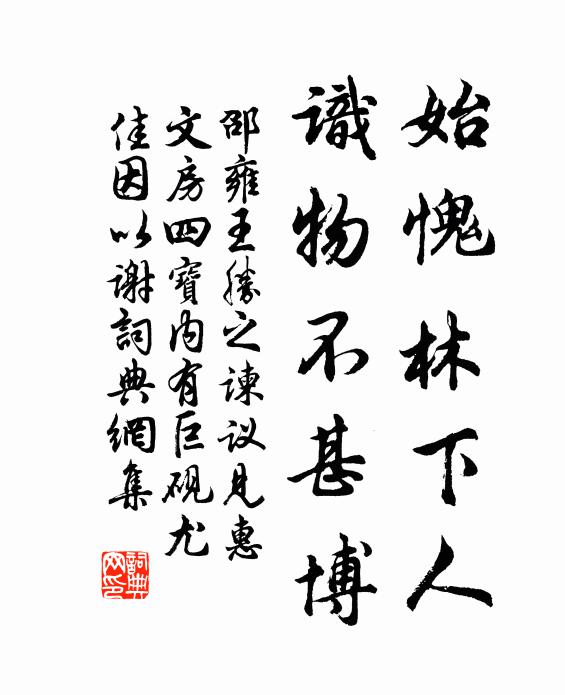 始愧林下人
識物不甚博
邵雍王勝之諫议見惠
文房四寶内有巨硯尤
佳因以谢詞典網集
詞典网印